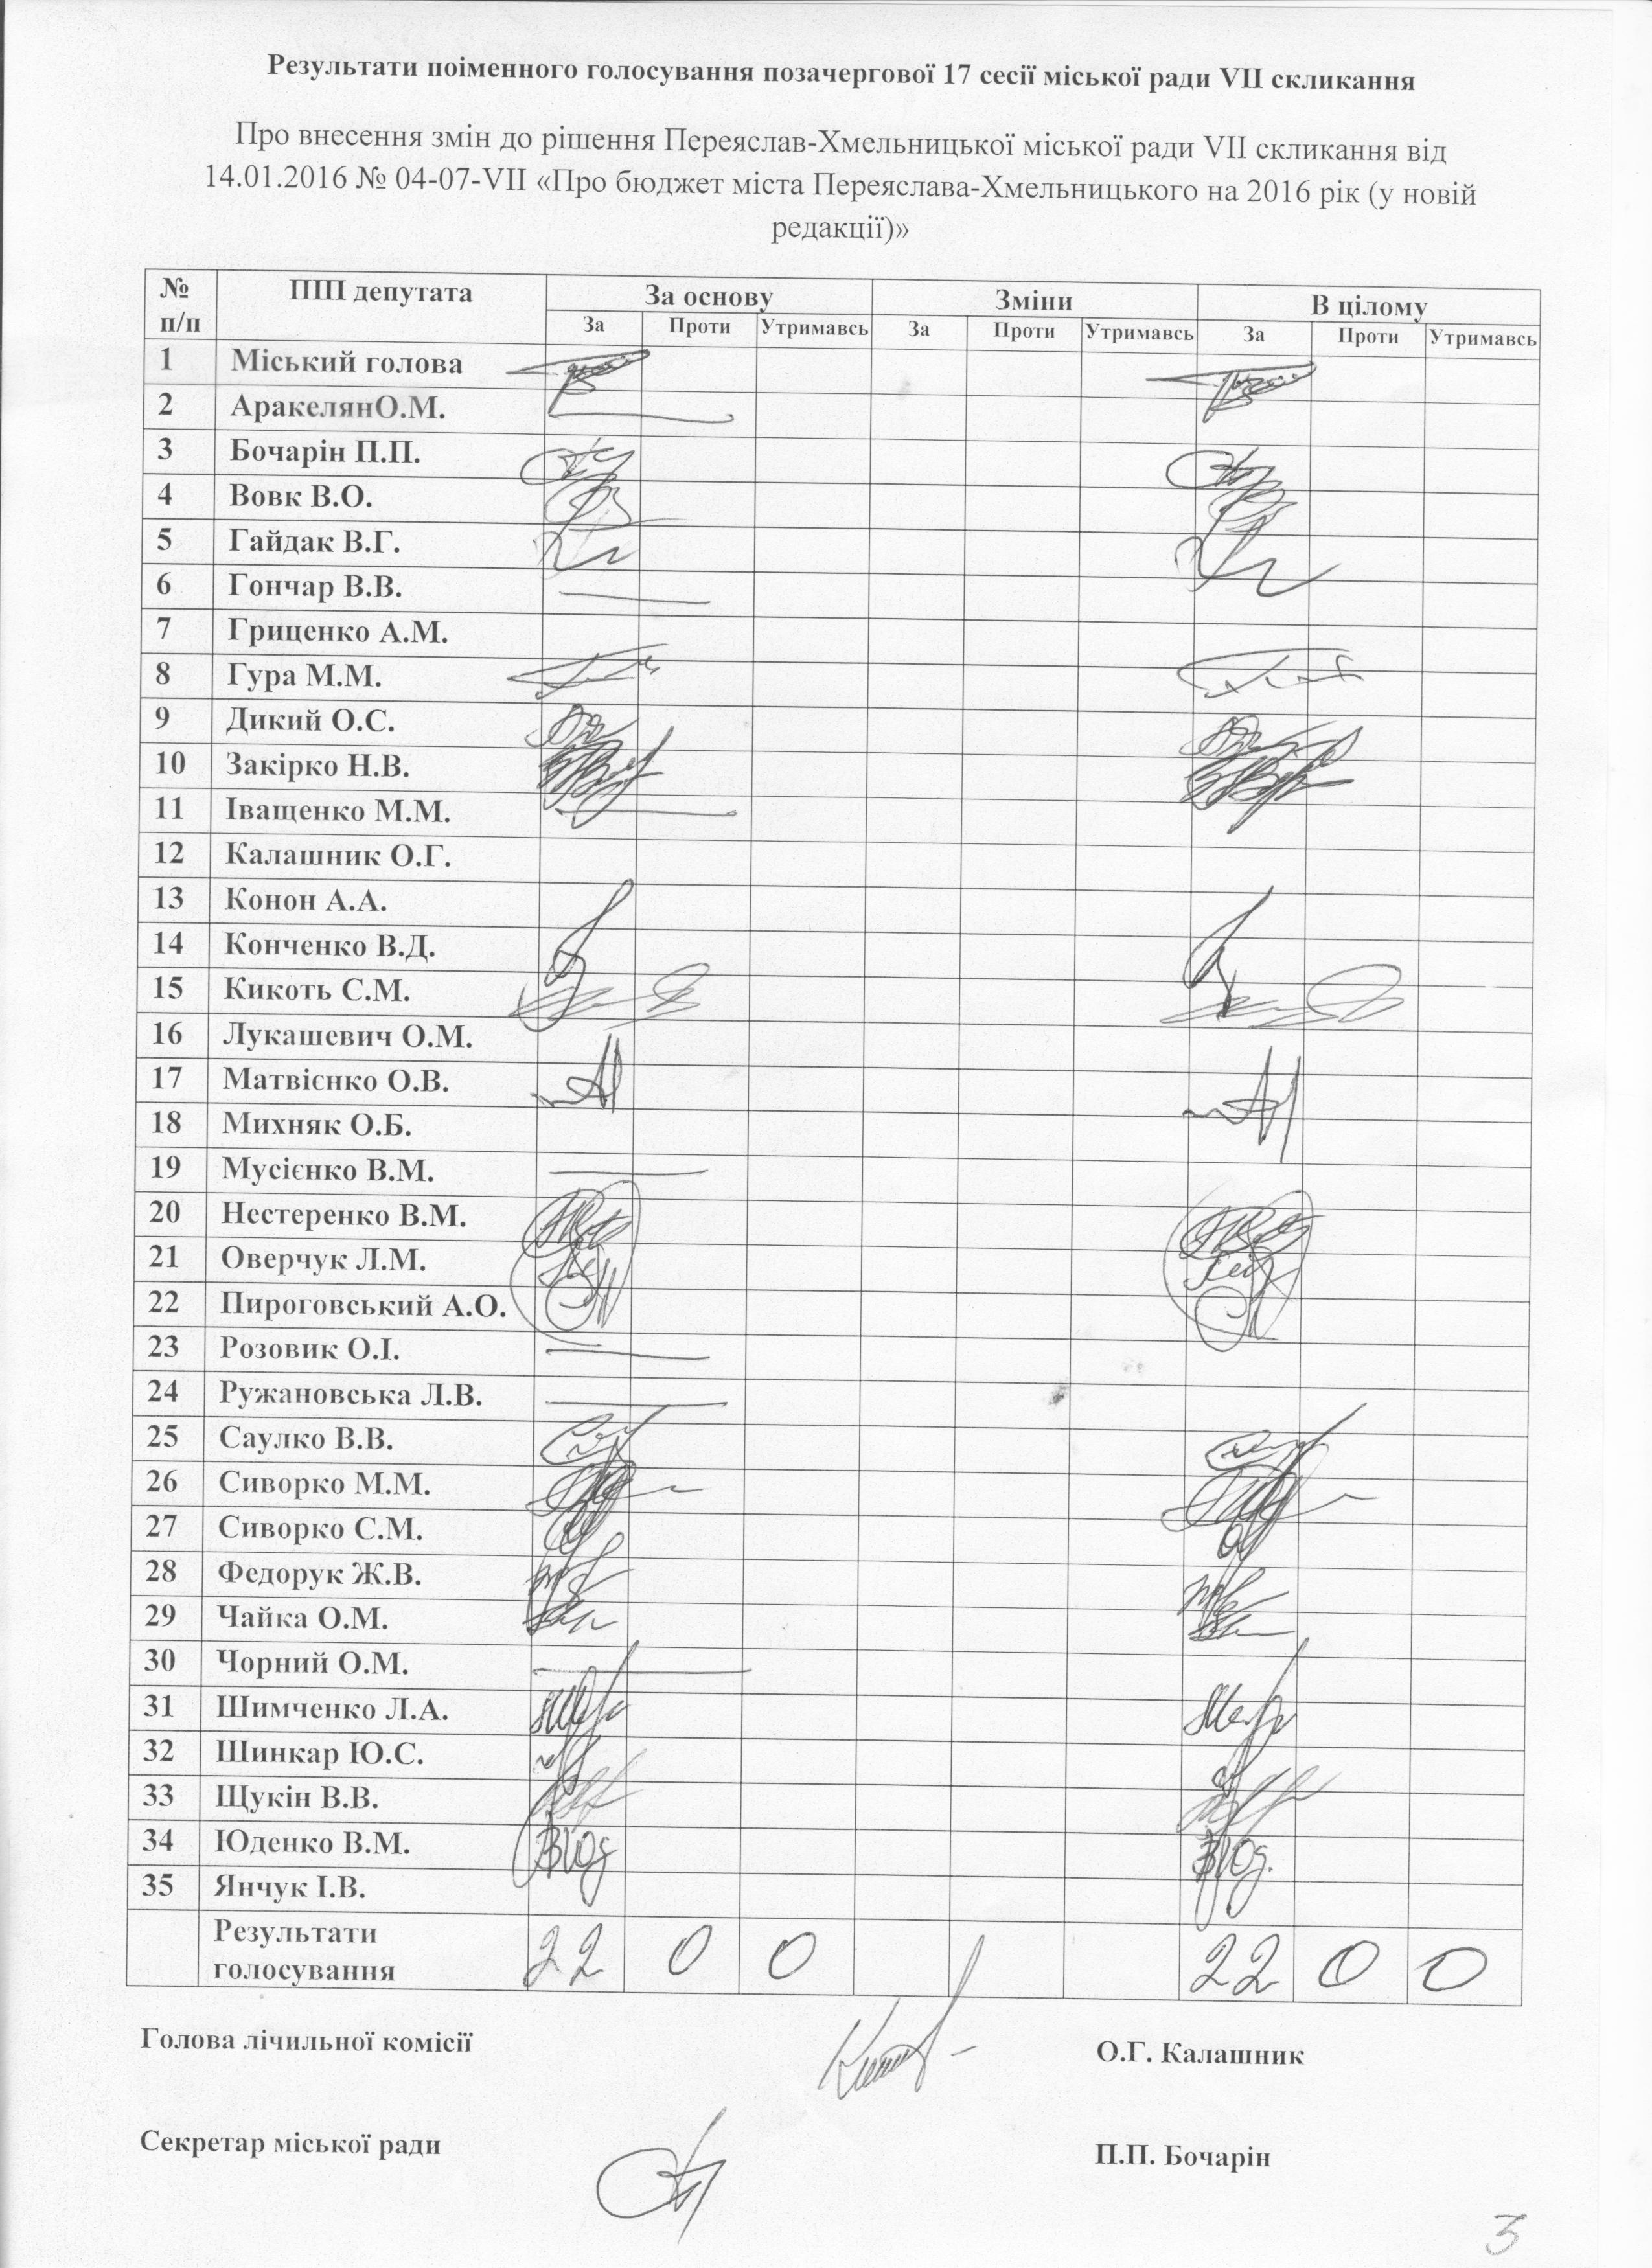 Результати поіменного голосування позачергової 17 сесії міської ради VII скликання
Про внесення змін до рішення Переяслав-Хмельницької міської ради VII скликання від
14.01.2016 № 04-07-VII «Про бюджет міста Переяслава-Хмельницького на 2016 рік (у новій
редакції)»
№ п/п ПІП депутата За основу Зміни В цілому
За Проти Утримавсь За Проти Утримавсь За Проти Утримавсь
1 Міський голова
2 АракелянО.М.
3 Бочарін П.П.
4 Вовк В.О.
5 Гайдак В.Г.
6 Гончар В.В.
7 Гриценко А.М.
8 Гура М.М.
9 Дикий О.С.
10 Закірко Н.В.
11 Іващенко М.М.
12 Калашник О.Г.
13 Конон А.А.
14 Конченко В.Д.
15 Кикоть С.М.
16 Лукашевич О.М.
17 Матвієнко О.В.
18 Михняк О.Б.
19 Мусієнко В.М.
20 Нестеренко В.М.
21 Оверчук Л.М.
22 Пироговський А.О.
23 Розовик О.І.
24 Ружановська Л.В.
25 Саулко В.В.
26 Сиворко М.М.
27 Сиворко С.М.
28 Федорук Ж.В.
29 Чайка О.М.
30 Чорний О.М.
31 Шимченко Л.А.
32 Шинкар Ю.С.
33 Щукін В.В.
34 Юденко В.М.
35 Янчук І.В.
Результати
голосування 22 0 0 22 0 0
Голова лічильної комісії О.Г. Калашник
Секретар міської ради П.П. Бочарін
3